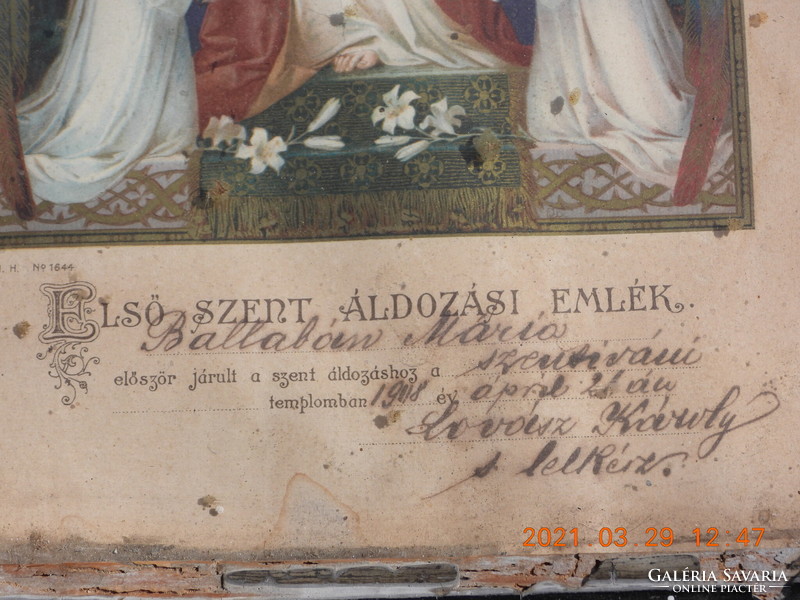 J. H. Nº 1644
ELSŐ SZENT ÁLDOZÁSI EMLÉK.
Ballabán Mária
először járult a szent áldozáshoz a szentiváni
templomban 1918 év ápril 21 án
Lovász Károly
s. lelkész.
2021.03.29 12:47
GALÉRIA SAVARIA
ONLINE PIACTÉR